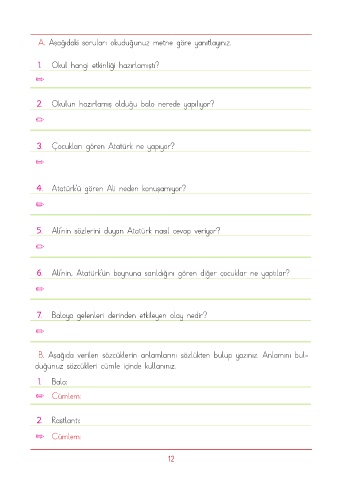 A. Aşağıdaki soruları okuduğunuz metne göre yanıtlayınız.
1. Okul hangi etkinliği hazırlamıştı?
2. Okulun hazırlamış olduğu balo nerede yapılıyor?
3. Çocukları gören Atatürk ne yapıyor?
4. Atatürk'ü gören Ali neden konuşamıyor?
5. Ali'nin sözlerini duyan Atatürk nasıl cevap veriyor?
6. Ali'nin, Atatürk'ün boynuna sarıldığını gören diğer çocuklar ne yaptılar?
7. Baloya gelenleri derinden etkileyen olay nedir?
B. Aşağıda verilen sözcüklerin anlamlarını sözlükten bulup yazınız. Anlamını bul-
duğunuz sözcükleri cümle içinde kullanınız.
1. Balo:
Cümlem:
2. Rastlantı:
Cümlem:
12